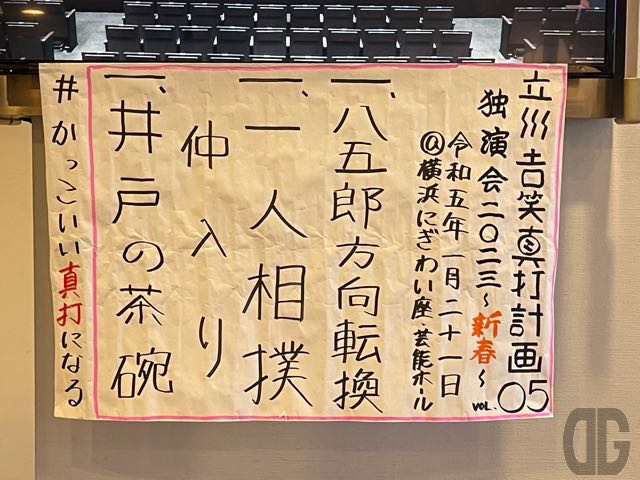 立川吉笑真打計画05
独演会二〇二三～新春～ VOL.
令和五年一月二十一日
@横浜にぎわい座・芸能ホール
一、八五郎方向転換
一、一人相撲
仲入り
一、井戸の茶碗
#かっこいい真打になる
DG